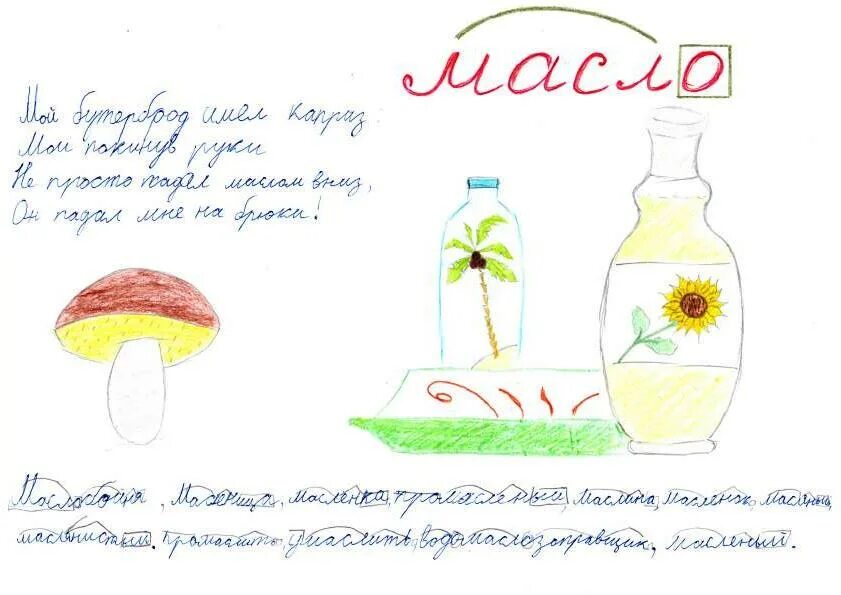 масло
Мой бутерброд имел капраз:
Мои покинув руки
Не просто падал маслом вниз,
Он падал мне на брюки!
Маслобойня, Масленица, масленка, промасленный, маслина, масленок, масляный,
маслянистый. Промаслить, умаслить, водомаслозоправщик, Масленый.